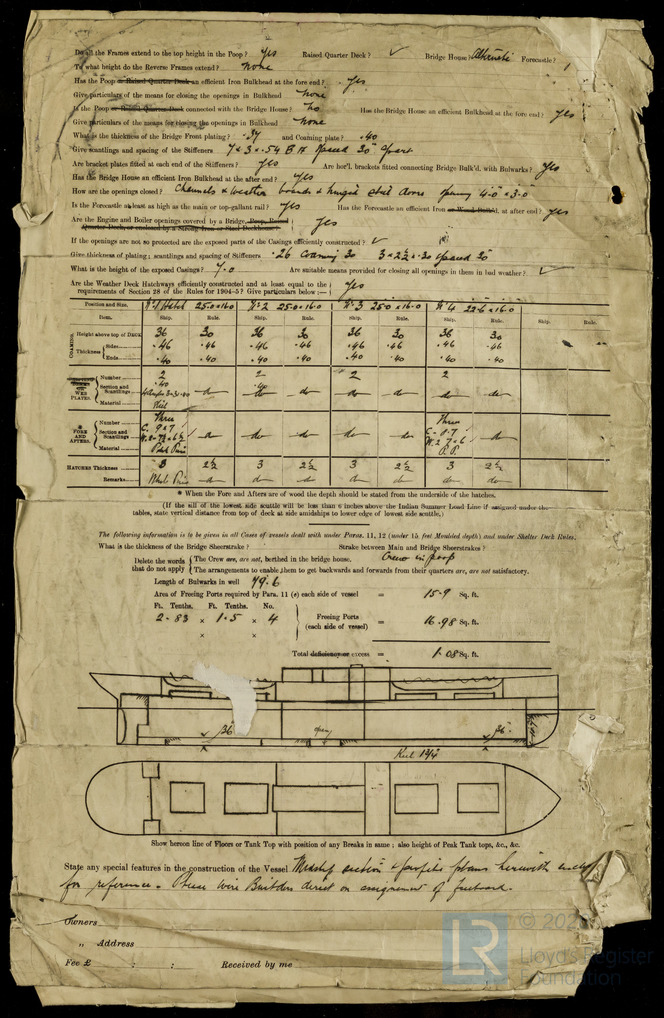 Do all the Frames extend to the top height in the Poop? Yes Raised Quarter Deck? ✓ Bridge House? Forecastle?
To what height do the Reverse Frames extend? None
Has the Poop or Raised Quarter Deck an efficient Iron Bulkhead at the fore end? Yes
Give particulars of the means for closing the openings in Bulkhead None
Is the Poop or Raised Quarter Deck connected with the Bridge House? No Has the Bridge House an efficient Bulkhead at the fore end? Yes
Give particulars of the means for closing the openings in Bulkhead None
What is the thickness of the Bridge Front plating? .34 and Coaming plate? .40
Give scantlings and spacing of the Stiffeners 7 x 3 x .54 B A spaced 30" apart
Are bracket plates fitted at each end of the Stiffeners? Yes Are hor'l. brackets fitted connecting Bridge Bulk'd. with Bulwarks? Yes
Has the Bridge House an efficient Iron Bulkhead at the after end? Yes
How are the openings closed? Channels & weather boards & hinged steel doors opening 4-0 x 3-0
Is the Forecastle at least as high as the main or top-gallant rail? Yes Has the Forecastle an efficient Iron or Wood Bulk'd. at after end? Yes
Are the Engine and Boiler openings covered by a Bridge, Poop, Raised
Quarter Deck, or enclosed by a Strong Iron or Steel Deckhouse? Yes
If the openings are not so protected are the exposed parts of the Casings efficiently constructed? ✓
Give thickness of plating; scantlings and spacing of Stiffeners .26 Coaming 30 3 x 2½ x .30 spaced 30"
What is the height of the exposed Casings? 7.0 Are suitable means provided for closing all openings in them in bad weather? ✓
Are the Weather Deck Hatchways efficiently constructed and at least equal to the
requirements of Section 28 of the Rules for 1904-5? Give particulars below:— Yes
Position and Size. No 1 Hatch 25.0 x 16.0 No 2 25.0 x 16.0 No 3 25.0 x 16.0 No 4 22.6 x 16.0
Item. Ship. Rule. Ship. Rule. Ship. Rule. Ship. Rule. Item. Rule.
COAMING. Height above top of DECK 36 30 36 30 36 30 36 30
Thickness Sides .46 .46 .46 .46 .46 .46 .46 .46
Ends .40 .40 .40 .40 .40 .40 .40 .40
WEB PLATES. Number 2 2 2 2
Section and Scantlings .40 do do do do do do do
Material Steel
* FORE AND AFTERS. Number Three Three
Section and Scantlings C. 9 x 7 do do do do do C. 8 x 7 do
Material Pitch Pine P.P.
HATCHES Thickness 3 2½ 3 2½ 3 2½ 3 2½
Remarks White Pine do do do do do do do
* When the Fore and Afters are of wood the depth should be stated from the underside of the hatches.
(If the sill of the lowest side scuttle will be less than 6 inches above the Indian Summer Load Line if assigned under the
tables, state vertical distance from top of deck at side amidships to lower edge of lowest side scuttle.)
The following information is to be given in all Cases of vessels dealt with under Paras. 11, 12 (under 15 feet Moulded depth) and under Shelter Deck Rules.
What is the thickness of the Bridge Sheerstrake? Strake between Main and Bridge Sheerstrakes?
Delete the words that do not apply The Crew are, are not, berthed in the bridge house. Crew in poop
The arrangements to enable them to get backwards and forwards from their quarters are, are not satisfactory.
Length of Bulwarks in well 79.6
Area of Freeing Ports required by Para. 11 (e) each side of vessel = 15.9 Sq. ft.
Ft. Tenths. Ft. Tenths. No.
2.83 x 1.5 x 4 Freeing Ports (each side of vessel) = 16.98 Sq. ft.
x x
Total deficiency or excess = 1.08 Sq. ft.
36" open 36"
Keel
Show hereon line of Floors or Tank Top with position of any Breaks in same; also height of Peak Tank tops, &c., &c.
State any special features in the construction of the Vessel Midship section & profile plans herewith
for reference. Please wire Builders direct on assignment of freeboard.
Owners
„ Address
Fee £ : : Received by me
LR
Lloyd's Register
Foundation